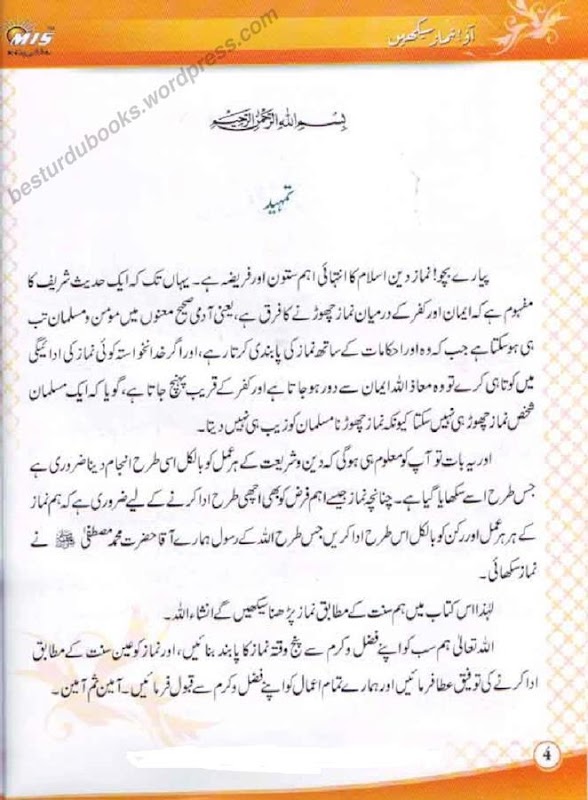 MIS
آؤ! نماز سیکھیں
besturdubooks.wordpress.com
بِسْمِ اللهِ الرَّحْمٰنِ الرَّحِيْمِ
تمہید
پیارے بچو! نماز دین اسلام کا انتہائی اہم ستون اور فریضہ ہے۔ یہاں تک کہ ایک حدیث شریف کا
مفہوم ہے کہ ایمان اور کفر کے درمیان نماز چھوڑنے کا فرق ہے، یعنی آدمی صحیح معنوں میں مؤمن و مسلمان تب
ہی ہوسکتا ہے جب کہ وہ اور احکامات کے ساتھ نماز کی پابندی کرتا رہے، اور اگر خدانخواستہ کوئی نماز کی ادائیگی
میں کوتاہی کرے تو وہ معاذ اللہ ایمان سے دور ہوجاتا ہے اور کفر کے قریب پہنچ جاتا ہے، گویا کہ ایک مسلمان
شخص نماز چھوڑ ہی نہیں سکتا کیونکہ نماز چھوڑنا مسلمان کو زیب ہی نہیں دیتا۔
اور یہ بات تو آپ کو معلوم ہی ہوگی کہ دین و شریعت کے ہر عمل کو بالکل اسی طرح انجام دینا ضروری ہے
جس طرح اسے سکھایا گیا ہے۔ چنانچہ نماز جیسے اہم فرض کو بھی اچھی طرح ادا کرنے کے لیے ضروری ہے کہ ہم نماز
کے ہر ہر عمل اور رکن کو بالکل اس طرح ادا کریں جس طرح اللہ کے رسول ہمارے آقا حضرت محمد مصطفیٰ ﷺ نے
نماز سکھائی۔
لہٰذا اس کتاب میں ہم سنت کے مطابق نماز پڑھنا سیکھیں گے انشاء اللہ۔
اللہ تعالیٰ ہم سب کو اپنے فضل و کرم سے پنج وقتہ نماز کا پابند بنائیں، اور نماز کو عین سنت کے مطابق
ادا کرنے کی توفیق عطا فرمائیں اور ہمارے تمام اعمال کو اپنے فضل و کرم سے قبول فرمائیں۔ آمین ثم آمین۔
4